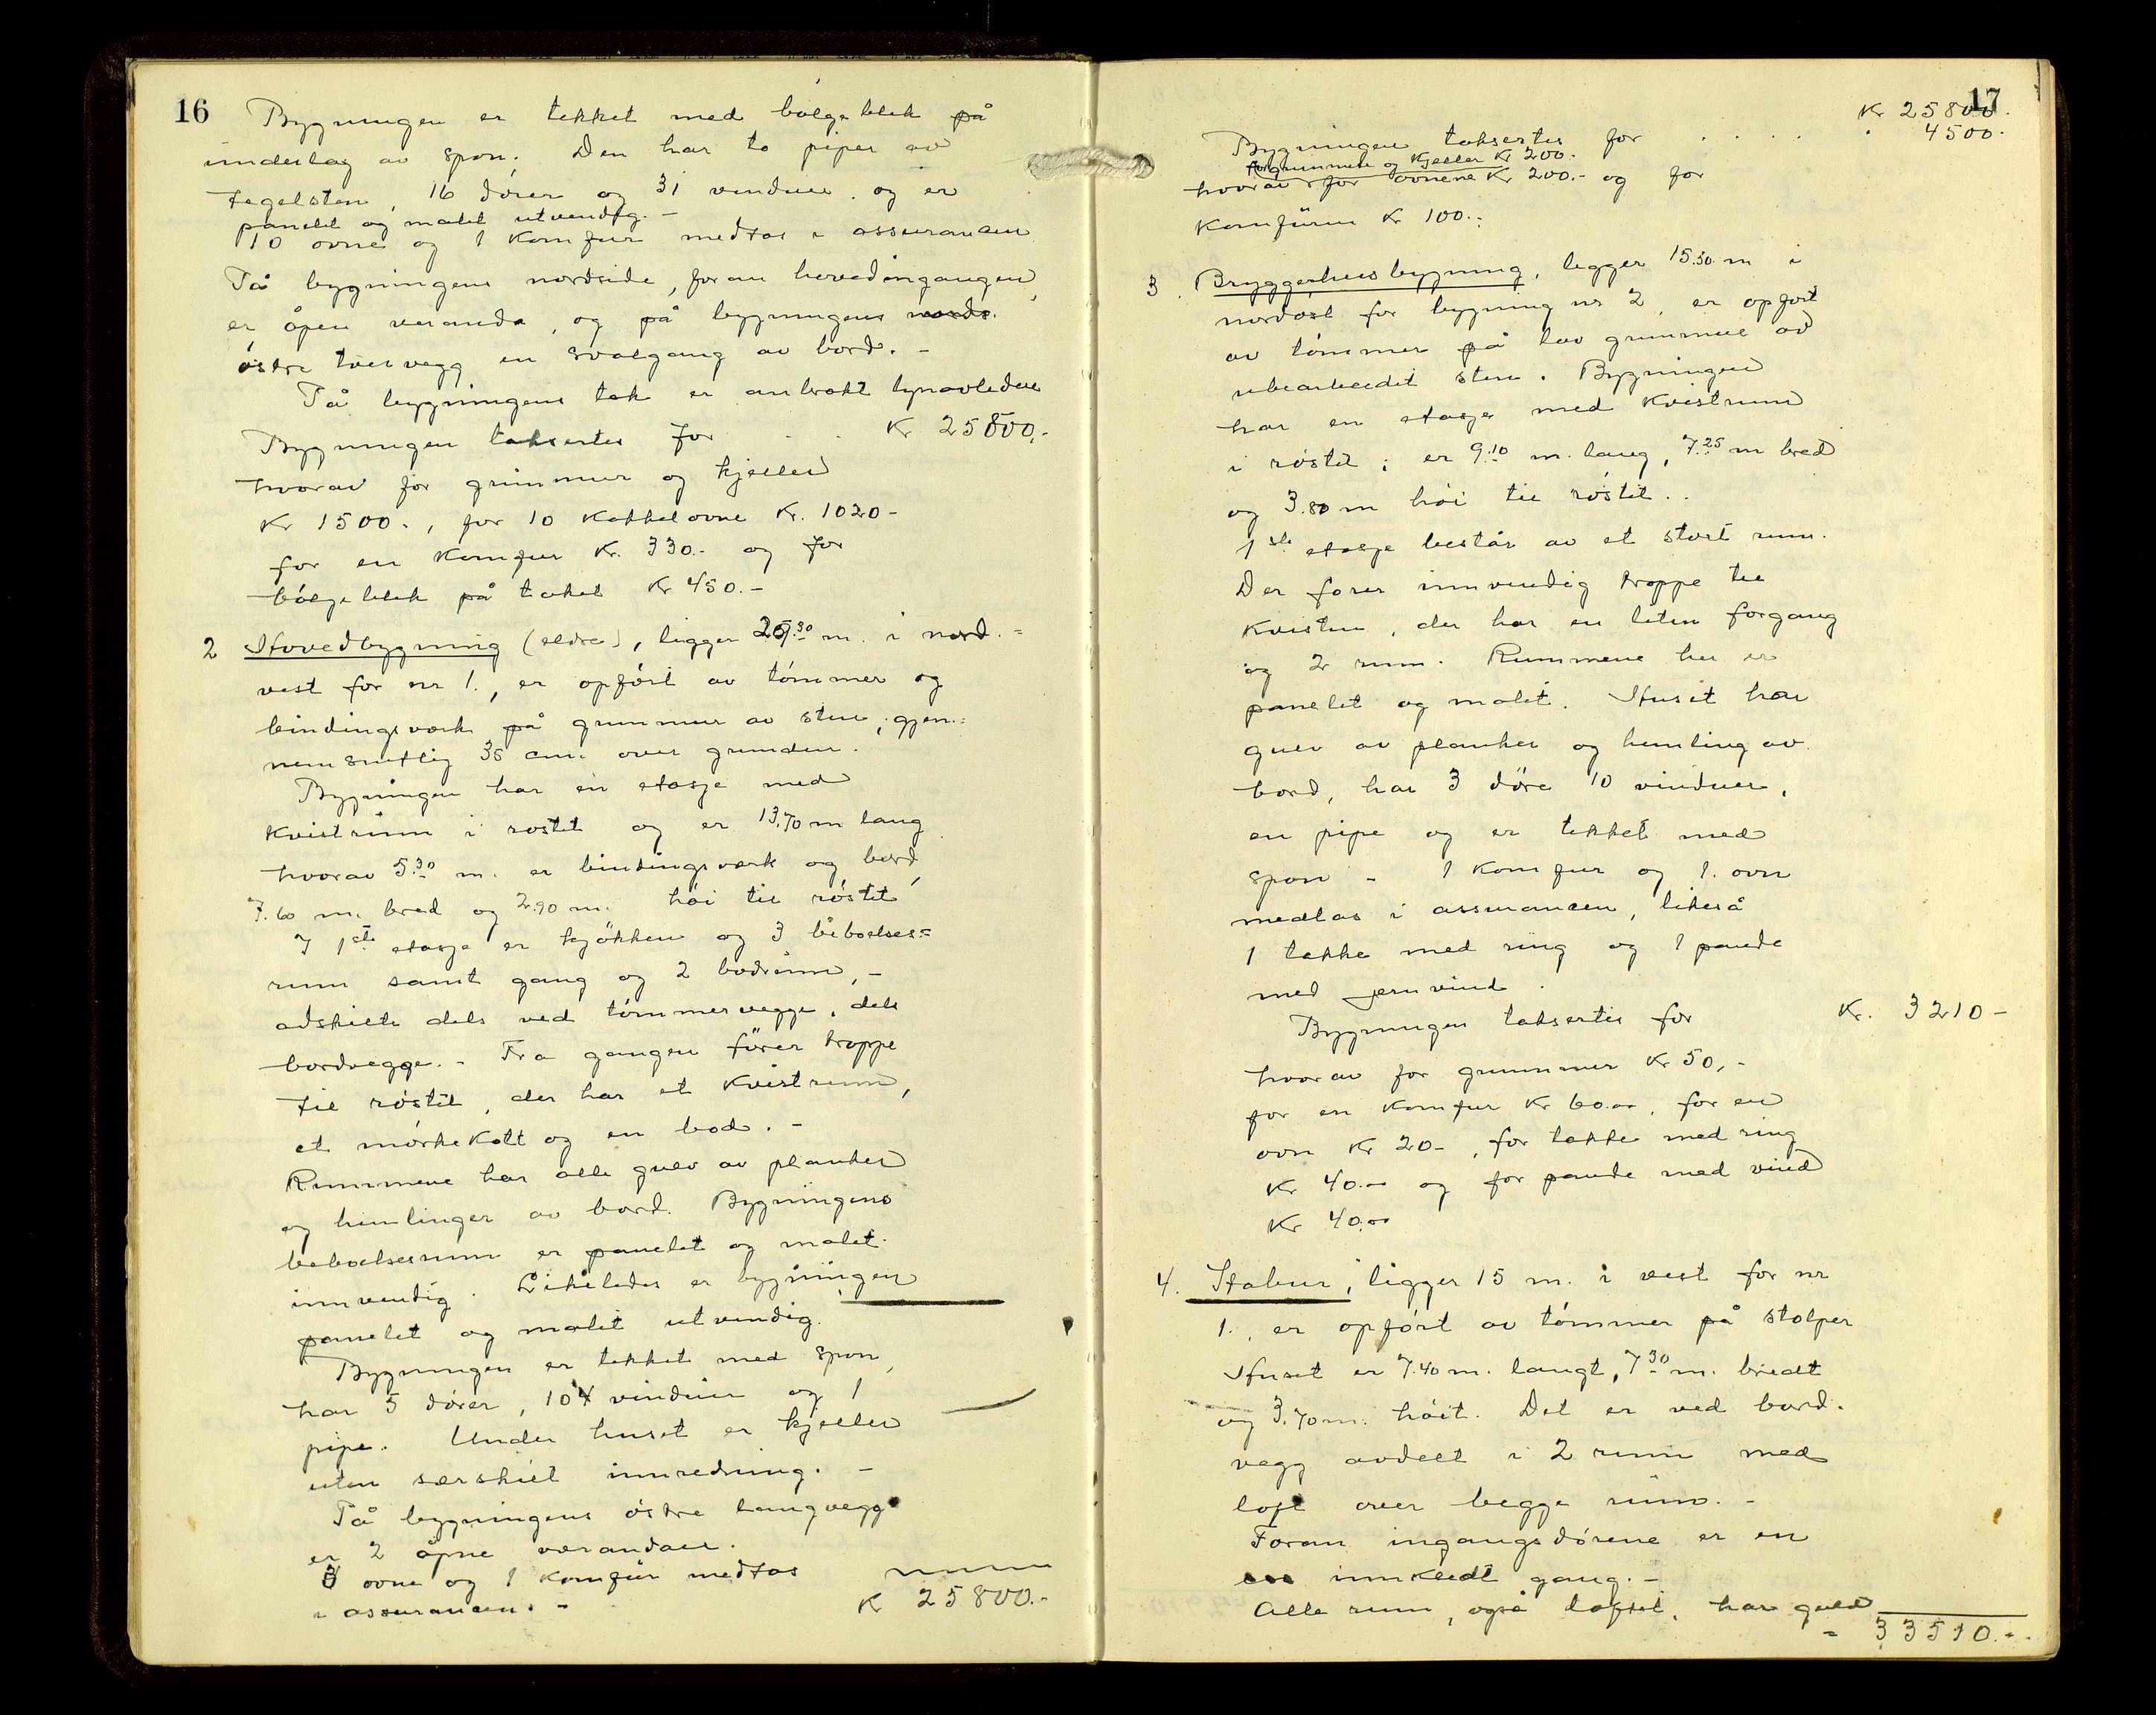 16
Bygningen er tekket med bølgeblek på
underlag av spon. Den har to piper av
tegelsten, 16 dører og 31 vinduer og er
panelet og malet utvendig. -
10 ovne og 1 komfur medtas i assurancen
På bygningens nordside, foran hovedingangen,
er åpen veranda, og på bygningens nords.
østre tvervegg en svalgang av bord. -
På bygningens tak er anbrakt lynavledere
Bygningen takseres for . . Kr 25800.-
hvorav for grunnmur og kjeller
Kr 1500.-, for 10 kakkelovne Kr. 1020-
for en komfur Kr. 330.- og for
bølgeblek på taket Kr 450.-
2 Hovedbygning (eldre), ligger 29.30 m. i nord-=
vest for nr 1., er opført av tømmer og
bindingsverk på grunnmur av sten, gjen-=
nemsnitlig 35 cm. over grunden.
Bygningen har en etasje med
kvistrum i røstet og er 13.70 m lang
hvorav 5.30 m. er bindingsverk og bord,
7.60 m. bred og 2.90 m. høi til røstet
I 1ste etasje er kjøkken og 3 beboelses=
rum samt gang og 2 bodrum, -
adskilte dels ved tømmervegge, dels
bordvegge. - Fra gangen fører trappe
til røstet, der har et kvistrum,
et mørkekott og en bod. -
Rummene har alle gulv av planker
og himlinger av bord. Bygningens
beboelsesrum er panelet og malet
innvendig. Likeledes er bygningen
panelet og malet utvendig.
Bygningen er tekket med spon,
har 5 dører, 10 vinduer og 1
pipe. Under huset er kjeller
uten særskilt innredning. -
På bygningens østre langvegg
er 2 åpne verandaer.
3 ovne og 1 komfur medtas
i assurancen. - Kr 25800.-
17
Kr 25800.
Bygningen takseres for . . . . . 4500.
for grunnmur og kjeller Kr 200.-
hvorav for ovnene Kr 200.- og for
komfuren Kr 100.-
3. Bryggerhusbygning, ligger 15.30 m i
nordøst for bygning nr 2, er opført
av tømmer på lav grunnmur av
ubearbeidet sten. Bygningen
har en etasje med kvistrum
i røstet; er 9.10 m. lang, 7.25 m bred
og 3.80 m høi til røstet..
1ste etasje består av et stort rum.
Der fører innvendig trappe til
kvisten, der har en liten forgang
og 2 rum. Rummene her er
panelet og malet. Huset har
gulv av planker og himling av
bord, har 3 døre 10 vinduer,
en pipe og er tekket med
spon - 1 komfur og 1. ovn
medtas i assurancen, likeså
1 takke med ring og 1 pande
med jernvind.
Bygningen takseres for Kr. 3210-
hvorav for grunnmur Kr 50,-
for en komfur Kr 60.00, for en
ovn Kr 20-, for takke med ring
Kr 40.00 og for pande med vind
Kr 40.00
4. Stabur, ligger 15 m. i vest for nr
1., er opført av tømmer på stolper
Huset er 7.40 m. langt, 7.30 m. bredt
og 3.70 m. høit. Det er ved bord-
vegg avdelt i 2 rum med
loft over begge rum. -
Foran ingangsdørene er en
innkledt gang. -
Alle rum, også loftet, har gulv
- 33510.-